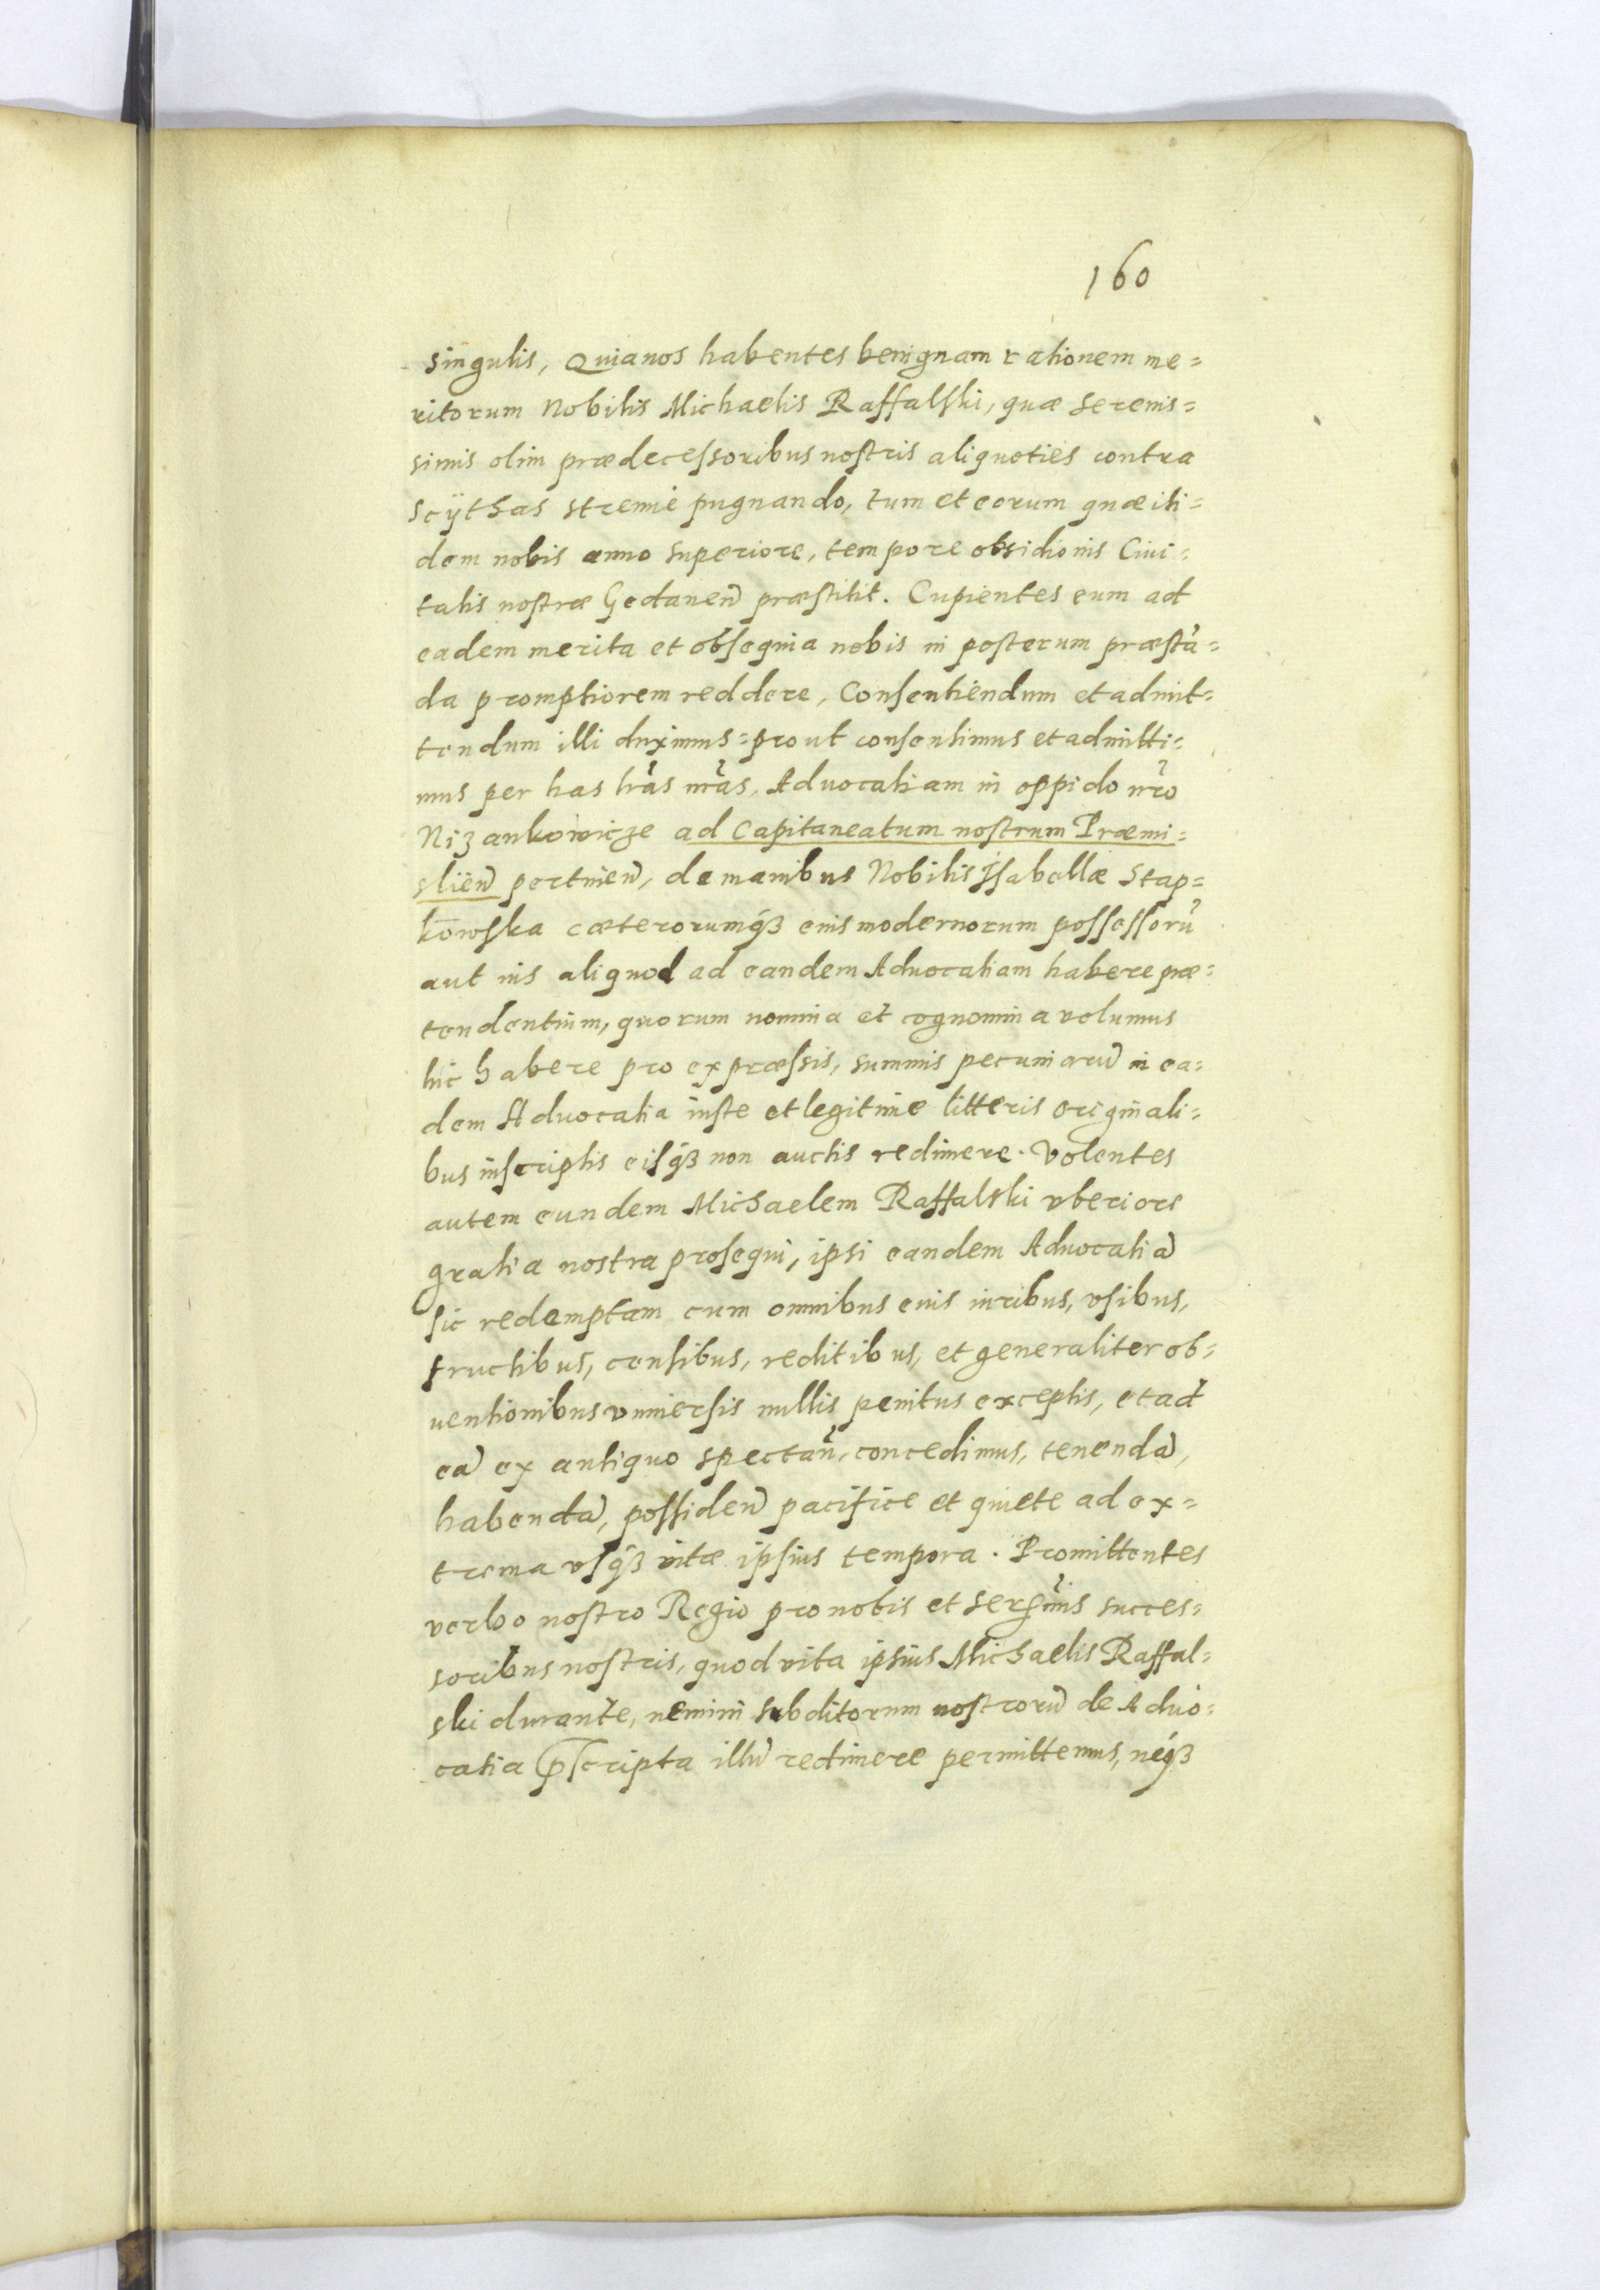 160
singulis, Quia nos habentes benignam rationem me=
ritorum Nobilis Michaelis Raffalski, quæ Serenis=
simis olim prædecessoribus nostris aliquoties contra
Scÿthas strenue pugnando, tum et eorum quæ iti=
dem nobis anno superiore, tempore obsidionis Ciui=
tatis nostræ Gedanen̄ præstitit. Cupientes eum ad
eadem merita et obsequia nobis in posterum præstã=
da promptiorem reddere, Consentiendum et admit=
tendum illi duximus=prout consentimus et admitti=
mus per has lr̃as nr̃as, Aduocatiam in oppido nr̃o
Nizankowicze ad Capitaneatum nostrum Præmi=
slien̄ pertinen̄, de manibus Nobilis Isabellæ Stap=
kowska cæterorumqꝫ eius modernorum possessorũ
aut ius aliquod ad eandem Aduocatiam habere præ=
tendentium, quorum nomina et cognomina volumus
hic habere pro expræssis, summis pecuniarũ in ea=
dem Aduocatia iuste et legitime litteris originali=
bus inscriptis eisqꝫ non auctis redimere. Volentes
autem eundem Michaelem Raffalski vberiore
gratia nostra prosequi, ipsi eandem Aduocatiã
sic redemptam cum omnibus euis iuribus, vsibus,
fructibus, censibus, reditibus, et generaliter ob=
uentionibus vniuersis nullis penitus exceptis, et ad
eã ex antiquo spectan̄, concedimus, tenendã,
habendã, possiden̄ pacifice et quiete ad ex=
trema vsqꝫ vitæ ipsius tempora. Promittentes
verbo nostro Regio pro nobis et Serꝫmis succes=
soribus nostris, quod vita ipsius Michaelis Raffal=
ski durante, nemini subditorum nostrorũ de Aduo=
catia p̄scripta illũ redimere permittemus, neqꝫ